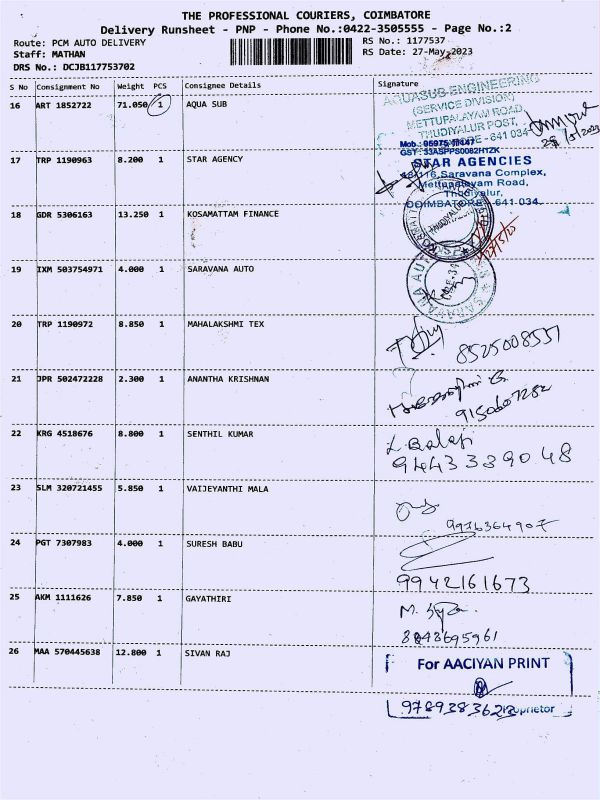 THE PROFESSIONAL COURIERS, COIMBATORE
Delivery Runsheet - PNP - Phone No.:0422-3505555 - Page No.:2
Route: PCM AUTO DELIVERY RS No.: 1177537
Staff: MATHAN RS Date: 27-May-2023
DRS No.: DCJB117753702
S No Consignment No Weight PCS Consignee Details Signature
16 ART 1852722 71.050 1 AQUA SUB
AQUASUB ENGINEERING
(SERVICE DIVISION)
METTUPALAYAM ROAD,
THUDIYALUR POST,
641 034
Mob.: 95975
GST: 33ASPPS0082H1ZK
17 TRP 1190963 8.200 1 STAR AGENCY
STAR AGENCIES
Saravana Complex,
Mettupalayam Road,
Thudiyalur,
COIMBATORE - 641 034.
18 GDR 5306163 13.250 1 KOSAMATTAM FINANCE
19 IXM 503754971 4.000 1 SARAVANA AUTO
20 TRP 1190972 8.850 1 MAHALAKSHMI TEX
8525008551
21 JPR 502472228 2.300 1 ANANTHA KRISHNAN
9150607282
22 KRG 4518676 8.800 1 SENTHIL KUMAR
L. Balaji
9443339048
23 SLM 320721455 5.850 1 VAIJEYANTHI MALA
9976364907
24 PGT 7307983 4.000 1 SURESH BABU
9942161673
25 AKM 1111626 7.850 1 GAYATHIRI
8043695961
26 MAA 570445638 12.800 1 SIVAN RAJ
For AACIYAN PRINT
9789383623 Proprietor